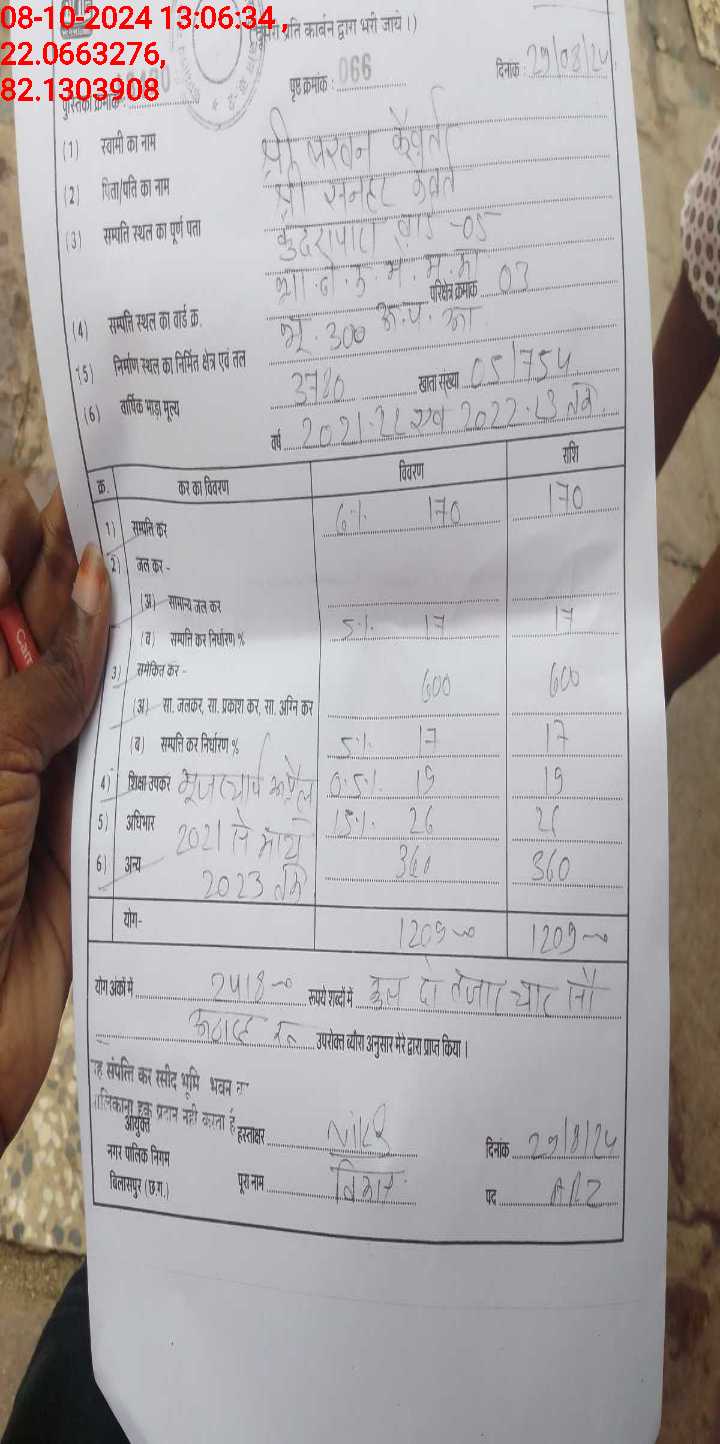 08-10-2024 13:06:34,
22.0663276,
82.1303908
प्रति कार्बन द्वारा भरी जाये।)
पुस्तिका क्रमांक पृष्ठ क्रमांक : 066 दिनांक : 29/08/24
(1) स्वामी का नाम श्री
(2) पिता/पति का नाम श्री
(3) सम्पति स्थल का पूर्ण पता कुंदरापारा वार्ड -05
परिक्षेत्र क्रमांक 03
(4) सम्पत्ति स्थल का वार्ड क्र. भू. 300
(5) निर्माण स्थल का निर्मित क्षेत्र एवं तल
3780 खाता संख्या 05/754
(6) वार्षिक भाड़ा मूल्य
वर्ष 2021-22 एवं 2022-23 तक.
क्र. कर का विवरण विवरण राशि
1) सम्पत्ति कर 6% 170 170
2) जल कर -
(अ) सामान्य जल कर
(ब) सम्पत्ति कर निर्धारण % 5% 17 17
3) समेकित कर -
(अ) सा. जलकर, सा. प्रकाश कर, सा. अग्नि कर 600 600
(ब) सम्पत्ति कर निर्धारण % 5% 17 17
4) शिक्षा उपकर 0.5% 19 19
5) अधिभार 2021 से मार्च 15% 26 26
6) अन्य 2023 तक 360 360
योग- 1209 1209
योग अंकों में 2418 रूपये शब्दों में कुल दो हजार चार सौ
अठारह रू उपरोक्त ब्यौरा अनुसार मेरे द्वारा प्राप्त किया।
यह संपत्ति कर रसीद भूमि भवन का
मालिकाना हक प्रदान नहीं करता है
आयुक्त हस्ताक्षर दिनांक 29/8/24
नगर पालिक निगम
बिलासपुर (छ.ग.) पूरा नाम पद